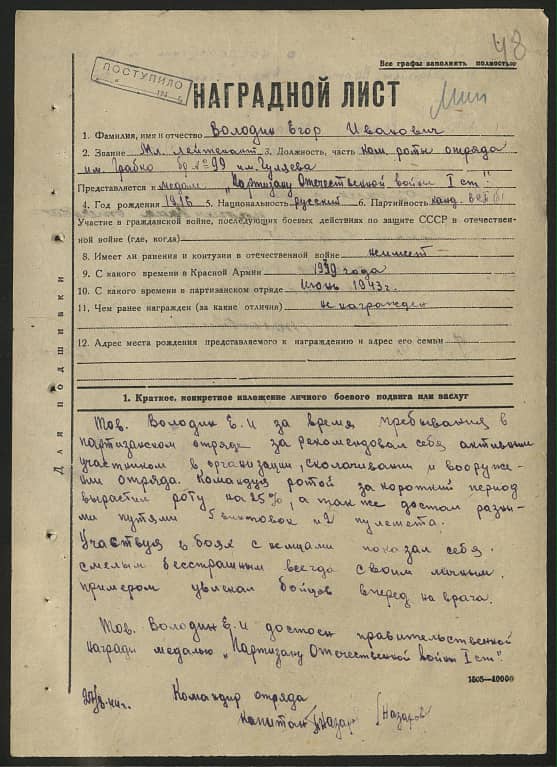 48
Все графы заполнять полностью
ПОСТУПИЛО
194
НАГРАДНОЙ ЛИСТ
1. Фамилия, имя и отчество Володин Егор Иванович
2. Звание Мл. лейтенант 3. Должность, часть ком. роты отряда
им. Грабко бр № 99 им. Гуляева
Представляется к медали „Партизану Отечественной войны I ст."
4. Год рождения 1916 5. Национальность русский 6. Партийность канд. ВКП(б)
Участие в гражданской войне, последующих боевых действиях по защите СССР и отечествен-
ной войне (где, когда)
8. Имеет ли ранения и контузии в отечественной войне не имеет
9. С какого времени в Красной Армии 1939 года
10. С какого времени в партизанском отряде Июнь 1943 г.
11. Чем ранее награжден (за какие отличия) не награжден
12. Адрес места рождения представляемого к награждению и адрес его семьи
Для подшивки
1. Краткое, конкретное изложение личного боевого подвига или заслуг
Тов. Володин Е.И за время пребывания в
партизанском отряде за рекомендовал себя активным
участником в организации, сколачивании и вооруже-
нии отряда. Командуя ротой за короткий период
вырастил роту на 25%, а так же достал разны-
ми путями 5 винтовок и 2 пулемета.
Участвуя в боях с немцами показал себя
смелым бесстрашным всегда своим личным
примером увлекал бойцов вперед на врага.
Тов. Володин Е.И достоен правительственной
награды медалью „Партизану Отечественной войны I ст".
1505—10000
Командир отряда
капитан Назаров /Назаров